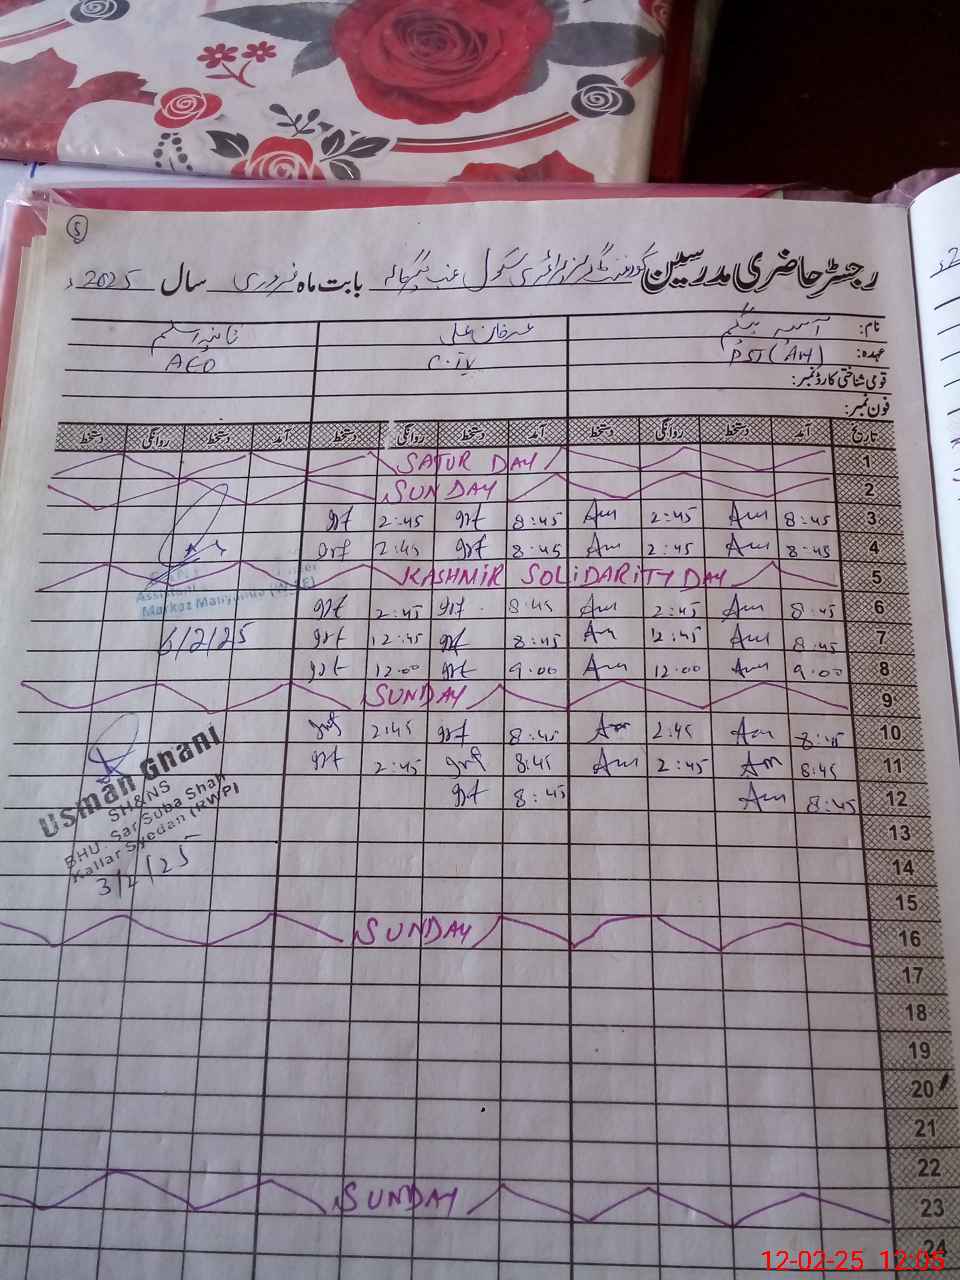 5
رجسٹر حاضری مدرسین گورنمنٹ گرلز پرائمری سکول بابت ماہ فروری سال 2025ء
نام: آسیہ بیگم عرفان علی
عہدہ: PST(AH) C-IV AEO
قومی شناختی کارڈ نمبر:
فون نمبر:
تاریخ آمد دستخط روانگی دستخط آمد دستخط روانگی دستخط آمد دستخط روانگی دستخط
1 SATUR DAY
2 SUNDAY
3 8:45 Am 2:45 Am 8:45 2:45
4 8:45 Am 2:45 Am 8:45 2:45
5 KASHMIR SOLIDARITY DAY
Markaz
6 8:45 Am 2:45 Am 8:45 2:45
7 8:45 Am 12:45 Am 8:45 12:45
6/2/25
8 9:00 Am 12:00 Am 9:00 12:00
9 SUNDAY
10 8:45 Am 2:45 Am 8:45 2:45
11 8:45 Am 2:45 Am 8:45 2:45
12 8:45 Am 8:45
Usman Ghani
SH&NS
BHU. Sar Suba Shah
Kallar Syedan (RWP)
3/2/25
13
14
15
16 SUNDAY
17
18
19
20
21
22
23 SUNDAY
24
12-02-25 12:05